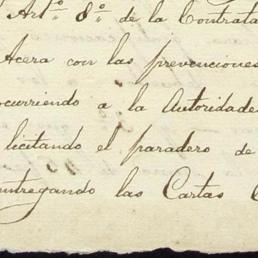 Art.º 8.º de la Contrata
Acera con las prevenciones
ocurriendo a la Autoridade
licitando el paradero de
entregando las Cartas